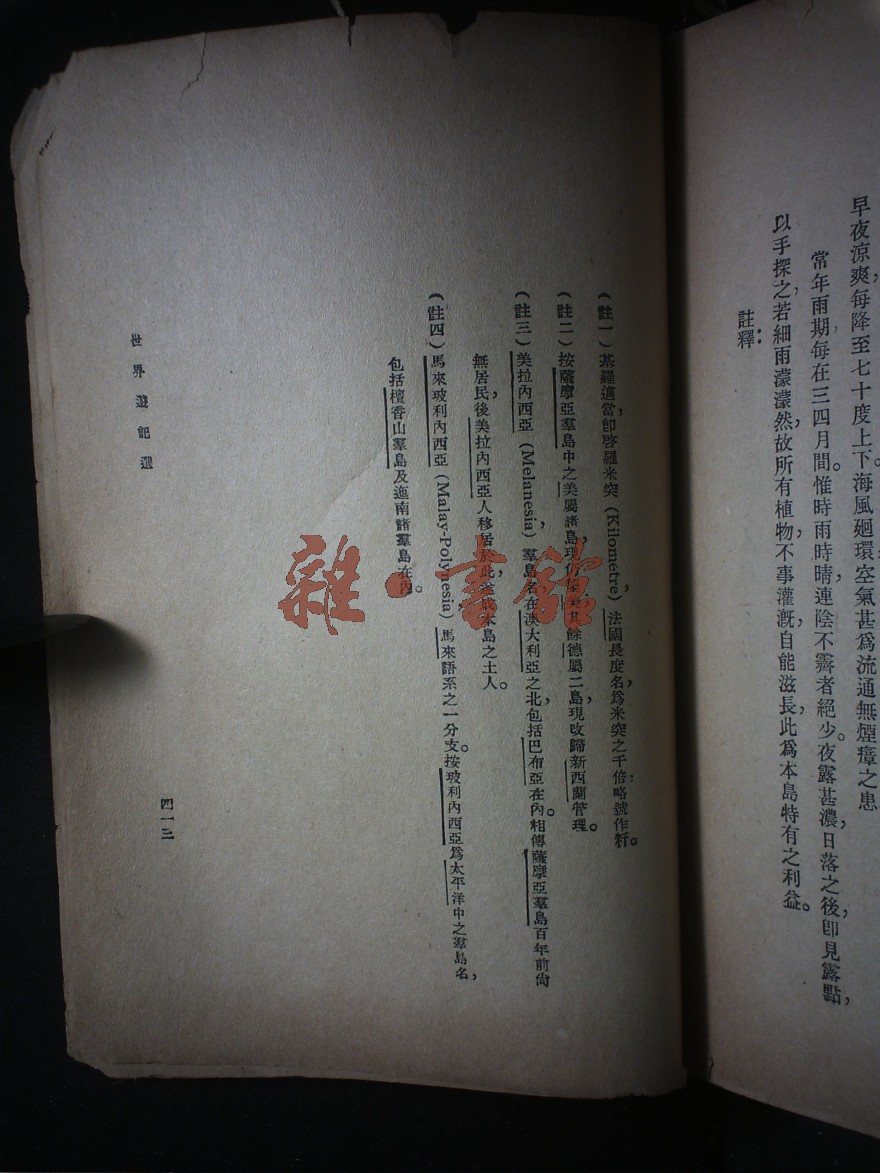 早夜涼爽，每降至七十度上下。海風廻環，空氣甚爲流通，無煙瘴之患
常年雨期，每在三四月間。惟時雨時晴，連陰不霽者絕少。夜露甚濃，日落之後，卽見露點，
以手探之，若細雨濛濛然，故所有植物，不事灌漑，自能滋長，此爲本島特有之利益。
註釋：
（註一）基羅邁當，卽啓羅米突（Kilometre），法國長度名，爲米突之千倍，略號作粁。
（註二）按薩摩亞羣島中之美屬諸島，現仍屬美，其餘德屬二島，現改歸新西蘭管理。
（註三）美拉內西亞（Melanesia），羣島名，在澳大利亞之北，包括巴布亞在內。相傳薩摩亞羣島百年前尙
無居民，後美拉內西亞人移居於此，本島之土人。
（註四）馬來玻利內西亞（Malay-Polynesia），馬來語系之一分支。按玻利內西亞爲太平洋中之羣島名，
包括檀香山羣島及迤南諸羣島在內。
世界遊記選
四一三
雜·書館